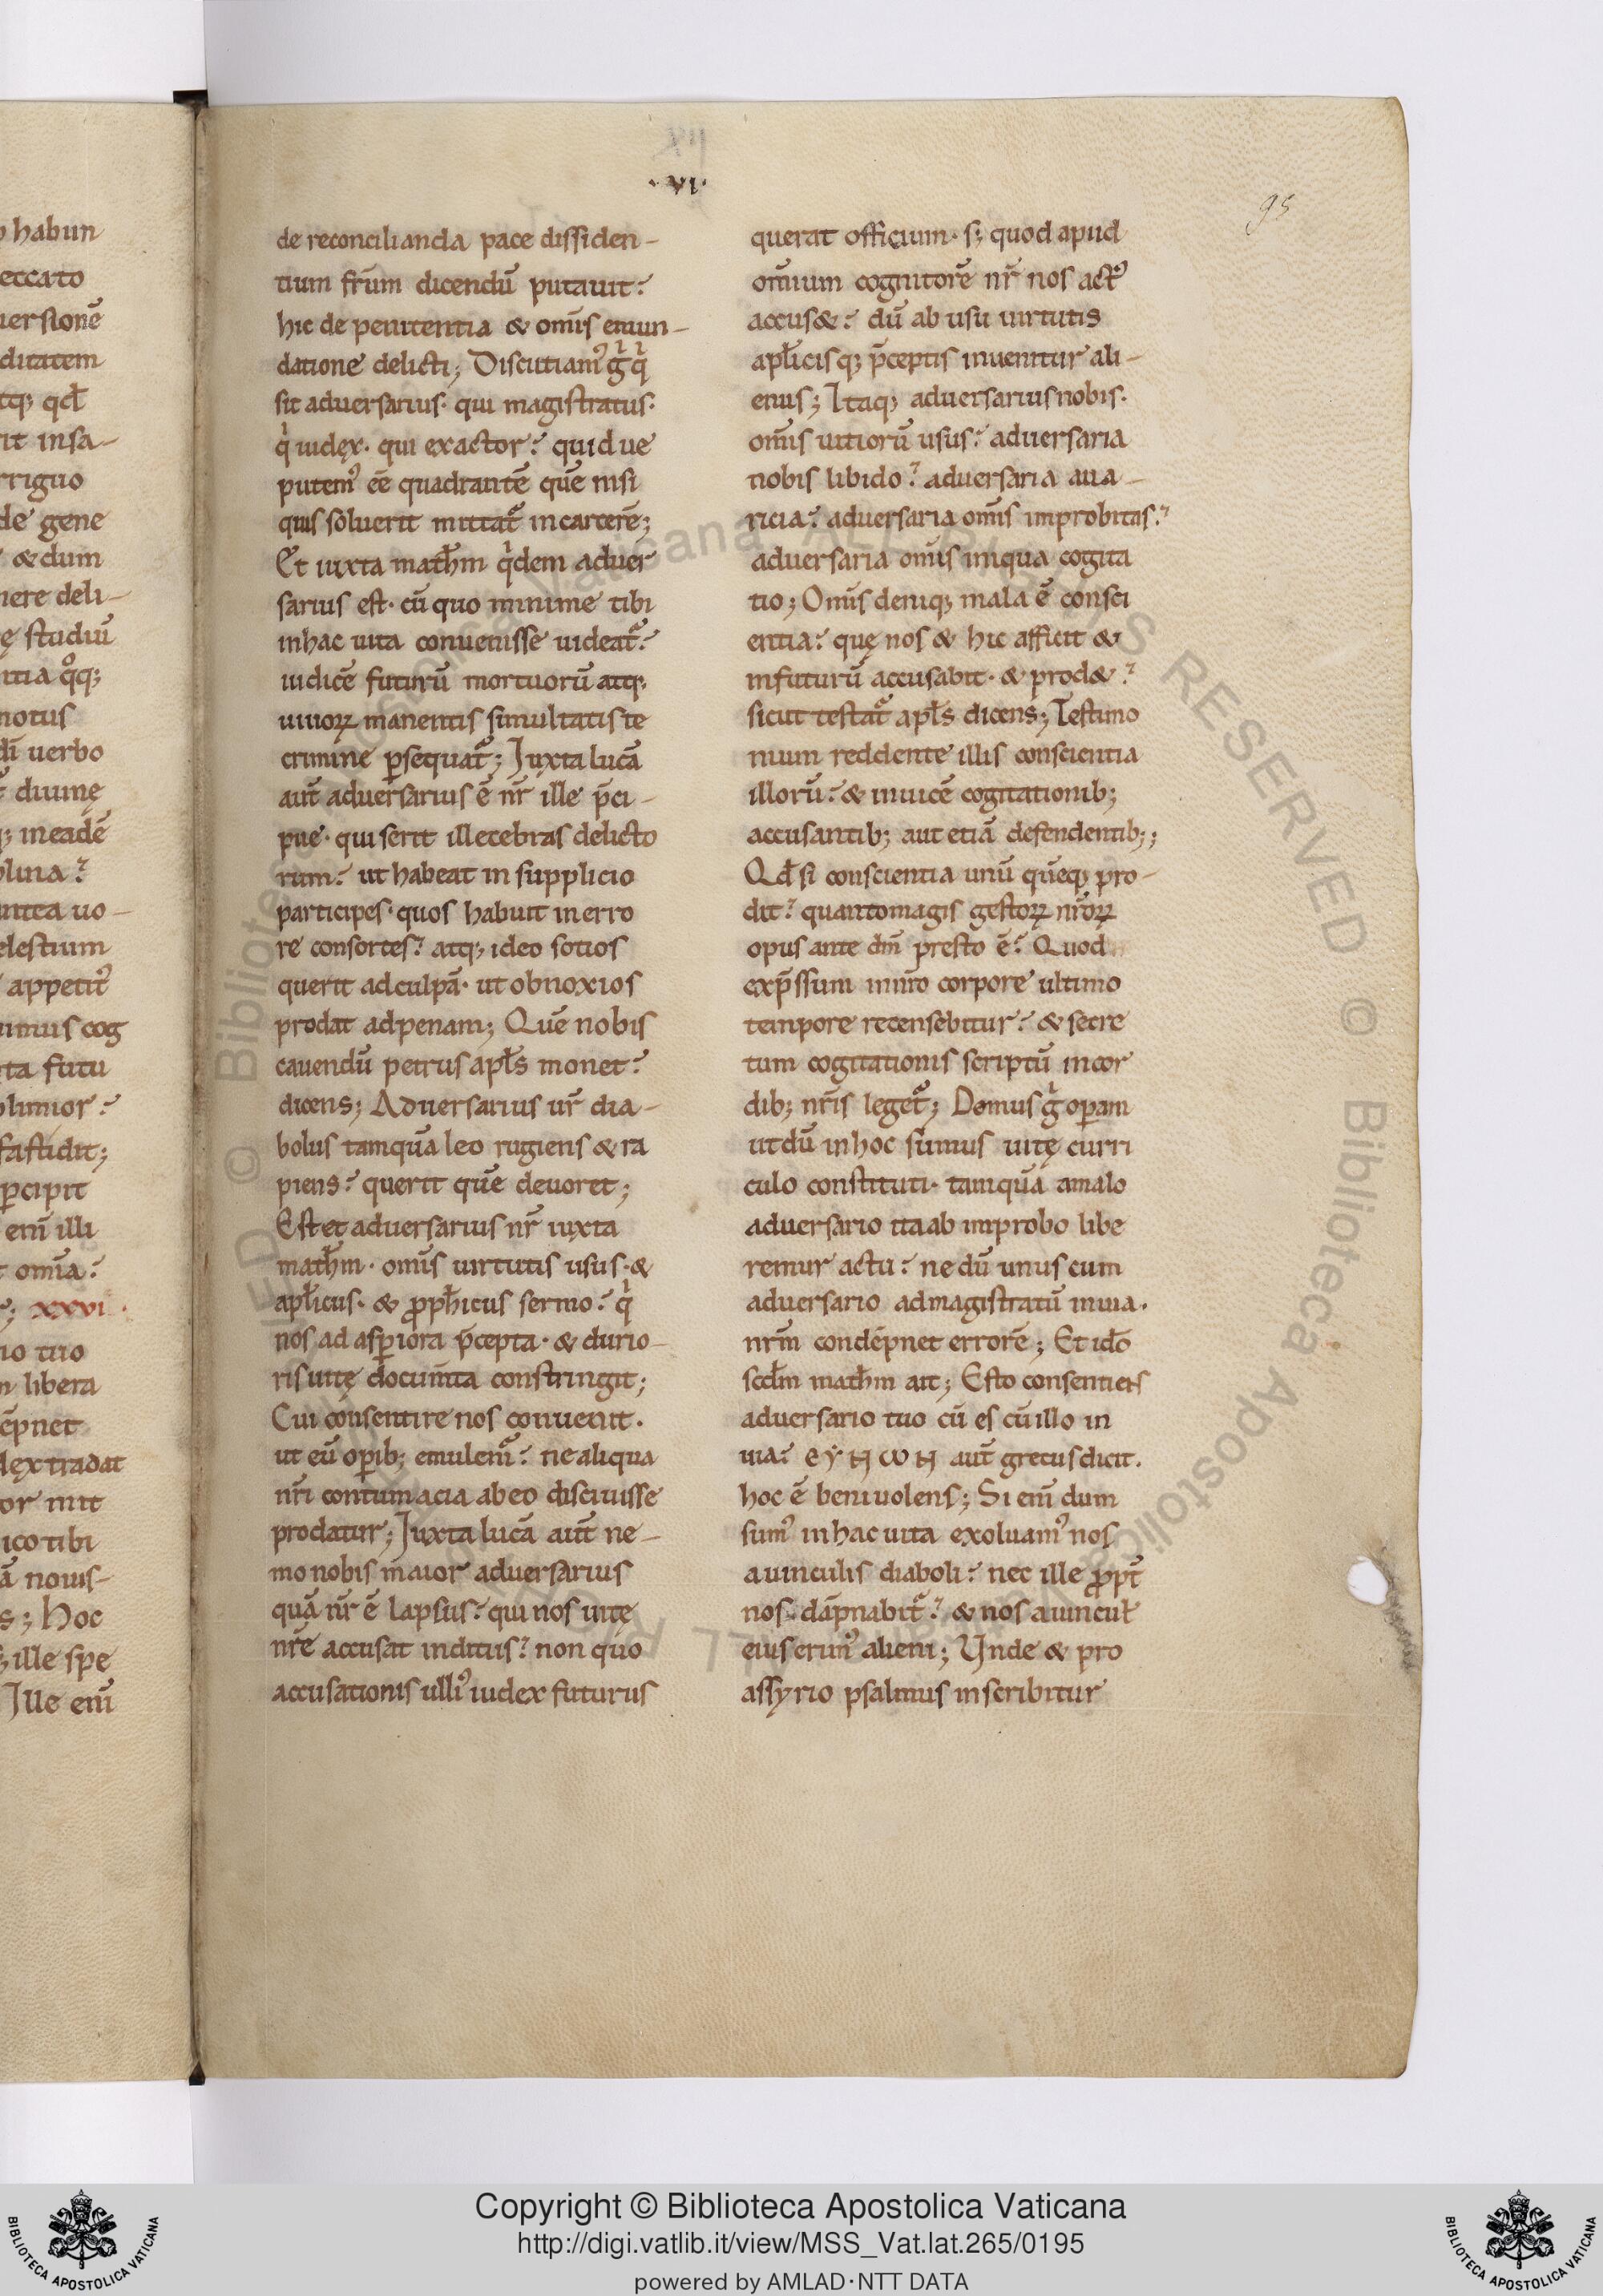 habun
eccato
uersionē
ditatem
tq; qđ
rit insa-
rriguo
de gene
& dum
nere deli-
ę studiū
ntia q̊q;
notus
di uerbo
diuinę
q; ineadē
plina?
untea uo-
elestium
appetit᷒
imus cog
ta futu
blimior?
fastidit;
ꝑcipit
enī illi
omīa?
; xxvi
io tuo
libera
ēpnet
dex tradat
or mit
ico tibi
ā nouis-
s; Hoc
; ille spe
Ille enī
·VI·
98
de reconcilianda pace dissiden-
tium fr̄um dicendū putauit?
hic de penitentia & omīs emun-
datione delicti; Discutiam᷒ gͥ qͥ
sit aduersarius· qui magistratus·
qͥ iudex· qui exactor? quid ue
putem᷒ eē quadrantē quē nisi
quis soluerit mittat᷑ in carcerē;
Et iuxta math̄m qͥdem aduer
sarius est· cū quo minime tibi
in hac uita conuenisse uideat᷑?
iudicē futurū mortuorū atq;
uiuoꝝ manentis simultatis te
crimine ꝑsequat᷑; Iuxta lucā
aut̄ aduersarius ē nr̄ ille p̄ci-
pue· qui serit illecebras delicto
rum? ut habeat in supplicio
participes· quos habuit in erro
re consortes? atq; ideo sotios
querit ad culpā· ut obnoxios
prodat ad penam; Quē nobis
cauendū petrus apl̄s monet?
dicens; Aduersarius ur̄ dia-
bolus tamquā leo rugiens & ra
piens? querit quē deuoret;
Est et aduersarius nr̄ iuxta
math̄m· omīs uirtutis usus· &
apl̄icus· & ꝓph̄icus sermo? qͥ
nos ad asꝑiora p̄cepta· & durio-
ris uitę documīta constringit;
Cui consentire nos conuenit·
ut eū oꝑib; emulem᷑? ne aliqua
nr̄i contumacia ab eo disciuisse
prodatur; Iuxta lucā aut̄ ne-
mo nobis maior aduersarius
quā nr̄ ē lapsus? qui nos uitę
nr̄e accusat inditus? non quo
accusationis ulli᷒ iudex futurus
querat officium· s; quod apud
omīum cognitorē nr̄ nos act᷒
accus&? dū ab usu uirtutis
apl̄icisq; p̄ceptis inuenitur ali-
enus; Itaq; aduersarius nobis·
omīs uitiorū usus? aduersaria
nobis libido? aduersaria aua-
ricia? aduersaria omīs improbitas?
aduersaria omīs iniqua cogita
tio; Omīs deniq; mala ē consci
entia? quę nos & hic afficit &
in futurū accusabit· & prod&?
sicut testat᷑ apl̄s dicens; Testimo
nium reddente illis conscientia
illorū? & inuicē cogitationib;
accusantib; aut etiā defendentib;;
Qđ si conscientia unū quēq; pro-
dit? quanto magis gestoꝝ nr̄oꝝ
opus ante dm̄ presto ē? Quod
exp̄ssum in nr̄o corpore ultimo
tempore recensebitur? & secre
tum cogitationis scriptū in cor
dib; nr̄is leget᷑; Demus gͥ oꝑam
ut dū in hoc sumus uitę curri
culo constituti· tamquā a malo
aduersario ita ab improbo libe
remur actu? ne dū unus cum
aduersario ad magistratū in uia·
nrm̄ condēpnet errorē; Et idō
scd̄m math̄m ait; Esto consentiens
aduersario tuo cū es cū illo in
uia? ЄΥΝѠΝ aut̄ grecus dicit·
hoc ē beniuolens; Si enī dum
sum᷒ in hac uita exoluam᷒ nos
a uinculis diaboli? nec ille ꝓpt̄
nos dāpnabit᷑? & nos a uincul̄
eius erim᷒ alieni; Unde & pro
assyrio psalmus inscribitur
Copyright © Biblioteca Apostolica Vaticana
http://digi.vatlib.it/view/MSS_Vat.lat.265/0195
powered by AMLAD·NTT DATA
BIBLIOTECA APOSTOLICA VATICANA
BIBLIOTECA APOSTOLICA VATICANA